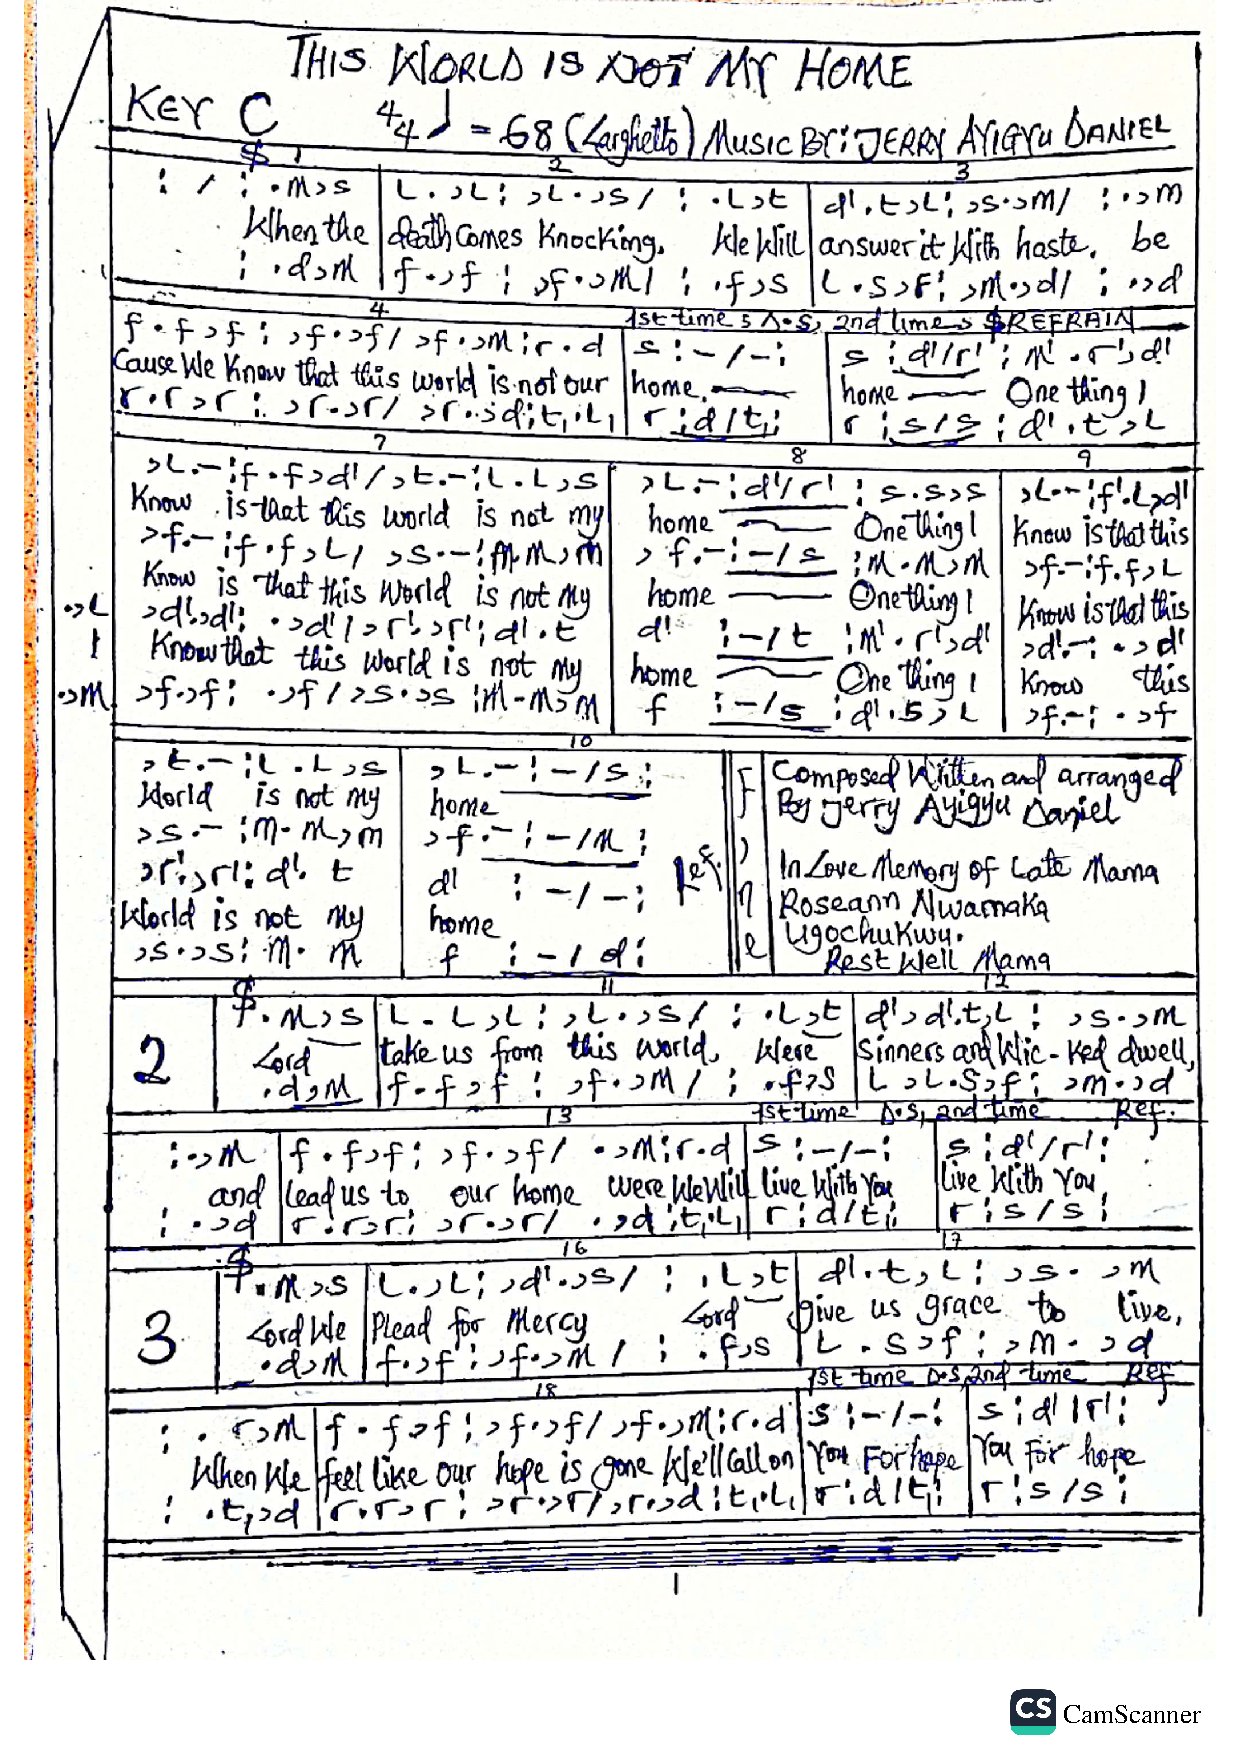 THIS WORLD IS NOT MY HOME
KEY C 4/4 ♩ = 68 (Larghetto) MUSIC BY: JERRY AYIGYU DANIEL
$ 1 2 3
: / : .M,s | L.,L: ,L.,s/ : .L,t | d'.t,L: ,s.,M/ : .,M
When the | death comes Knocking. We Will | answer it With haste. be
: .d,M | f.,f : ,f.,M/ : .f,s | L.s,F: ,M.,d/ : .,d
4 1st time D.S, 2nd time $ REFRAIN
f.f,f : ,f.,f/ ,f.,M:r.d | s :-/-: | s :d'/r' : M'.r',d'
Cause We Know that this world is not our | home. | home One thing I
r.r,r : ,r.,r/ ,r.,d:t,.L, | r :d/t,: | r :s/s : d'.t,L
7 8 9
,L.-:f.f,d'/,t.-:L.L,s | ,L.-:d'/r' : s.s,s | ,L.-:f'.L,d'
Know is that this world is not my | home One thing I | Know is that this
,f.-:f.f,L/ ,s.-:M.M,m | ,f.-:-/s :M.M,M | ,f.-:f.f,L
Know is that this World is not My | home One thing I | Know is that this
.,L ,d'.,d': .,d'/,r'.,r': d'.t | d' :-/t :M'.r',d' | ,d'.-: .,d'
I Know that this World is not My | home One thing I | Know this
.,M ,f.,f: .,f/,s.,s :M.M,M | f :-/s :d'.s,L | ,f.-: .,f
10
,t.-:L.L,s | ,L.-:-/s: | Composed Written and arranged
World is not my | home | By Jerry Ayigyu Daniel
,s.-:m.M,m | ,f.-:-/M: | Ref.
,r'.,r': d'. t | d' :-/-: | In Love Memory of Late Mama
World is not My | home | Roseann Nwamaka
,s.,s: .M. M | f :-/d: | Ugochukwu.
Rest Well Mama
F
i
n
e
$ 11 12
2 .M,s | L.L,L: ,L.,s/ : .L,t | d',d'.t,L : ,s.,M
Lord | take us from this world, Were | Sinners and Wic-Ked dwell,
.d,M | f.f,f : ,f.,M/ : .f,s | L,L.S,f: ,m.,d
13 1st time D.S, 2nd time Ref.
:.,M | f.f,f: ,f.,f/ .,M:r.d | s :-/-: | s :d'/r':
and | lead us to our home were We Will | live With You | live With You,
: .,d | r.r,r: ,r.,r/ .,d:t,.L, | r :d/t,: | r :s/s:
$ 16 17
3 .M,s | L.,L: ,d'.,s/ : .L,t | d'.t,L : ,s. ,M
Lord We | Plead for Mercy Lord | give us grace to live,
.d,M | f.,f: ,f.,M/ : .f,s | L.s,f : ,M. ,d
18 1st time D.S, 2nd time Ref
: . r,M | f.f,f: ,f.,f/ ,f.,M:r.d | s :-/-: | s :d'/r':
When We | feel like our hope is gone We'll Call on | You For hope | You For hope
: .t,,d | r.r,r : ,r.,r/,r.,d :t,.L, | r :d/t,: | r :s/s:
1
CS CamScanner